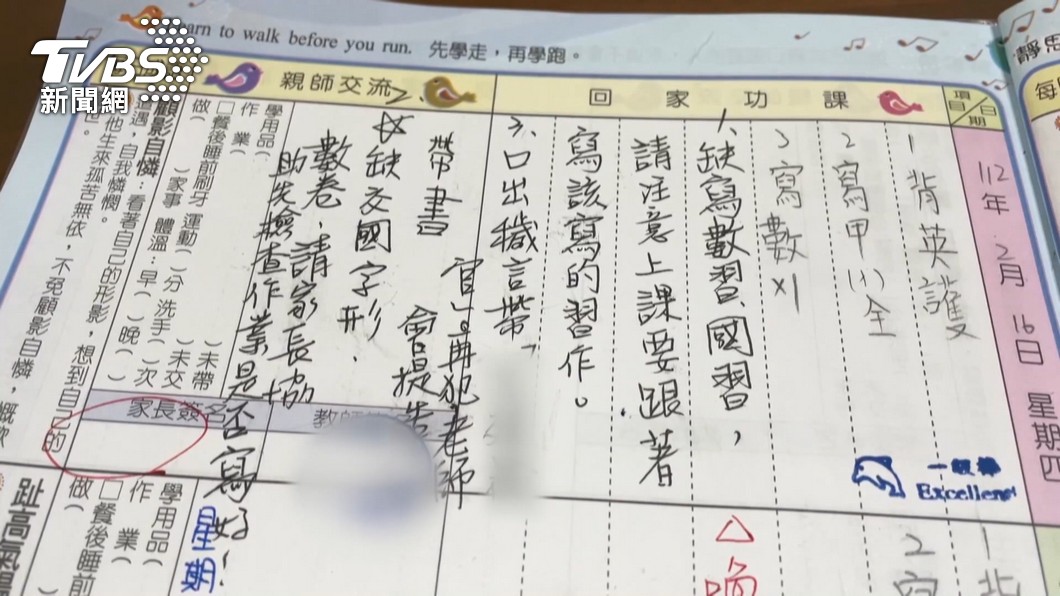 TVBS
新聞網
earn to walk before you run. 先學走，再學跑。
靜思
每
項目
日期
回家功課
親師交流
112年2月16日 星期四
1 背英護
2 寫甲(八)全
3 寫數×1
1、缺寫數習、國習，
請注意上課要跟著
寫該寫的習作。
3、口出穢言帶
官」再犯老師
會提告
2.
帶書
缺交國字形.
數卷，請家長協
助先檢查作業是否寫好！
學用品（ ）未帶
作 業（ ）未交
□餐後睡前刷牙 運動（ ）分 洗手（ ）次
做（ ）家事 體溫：早（ ）晚（ ）
家長簽名
教師
顧影自憐：看著自己的形影，想到自己的
遭遇，自我憐憫。
他生來孤苦無依，不免顧影自憐，慨歎
一級棒
Excellent
1 北
2
△
喚
星期
學用品（
作 業（
□餐後睡前
做（
趾高氣揚